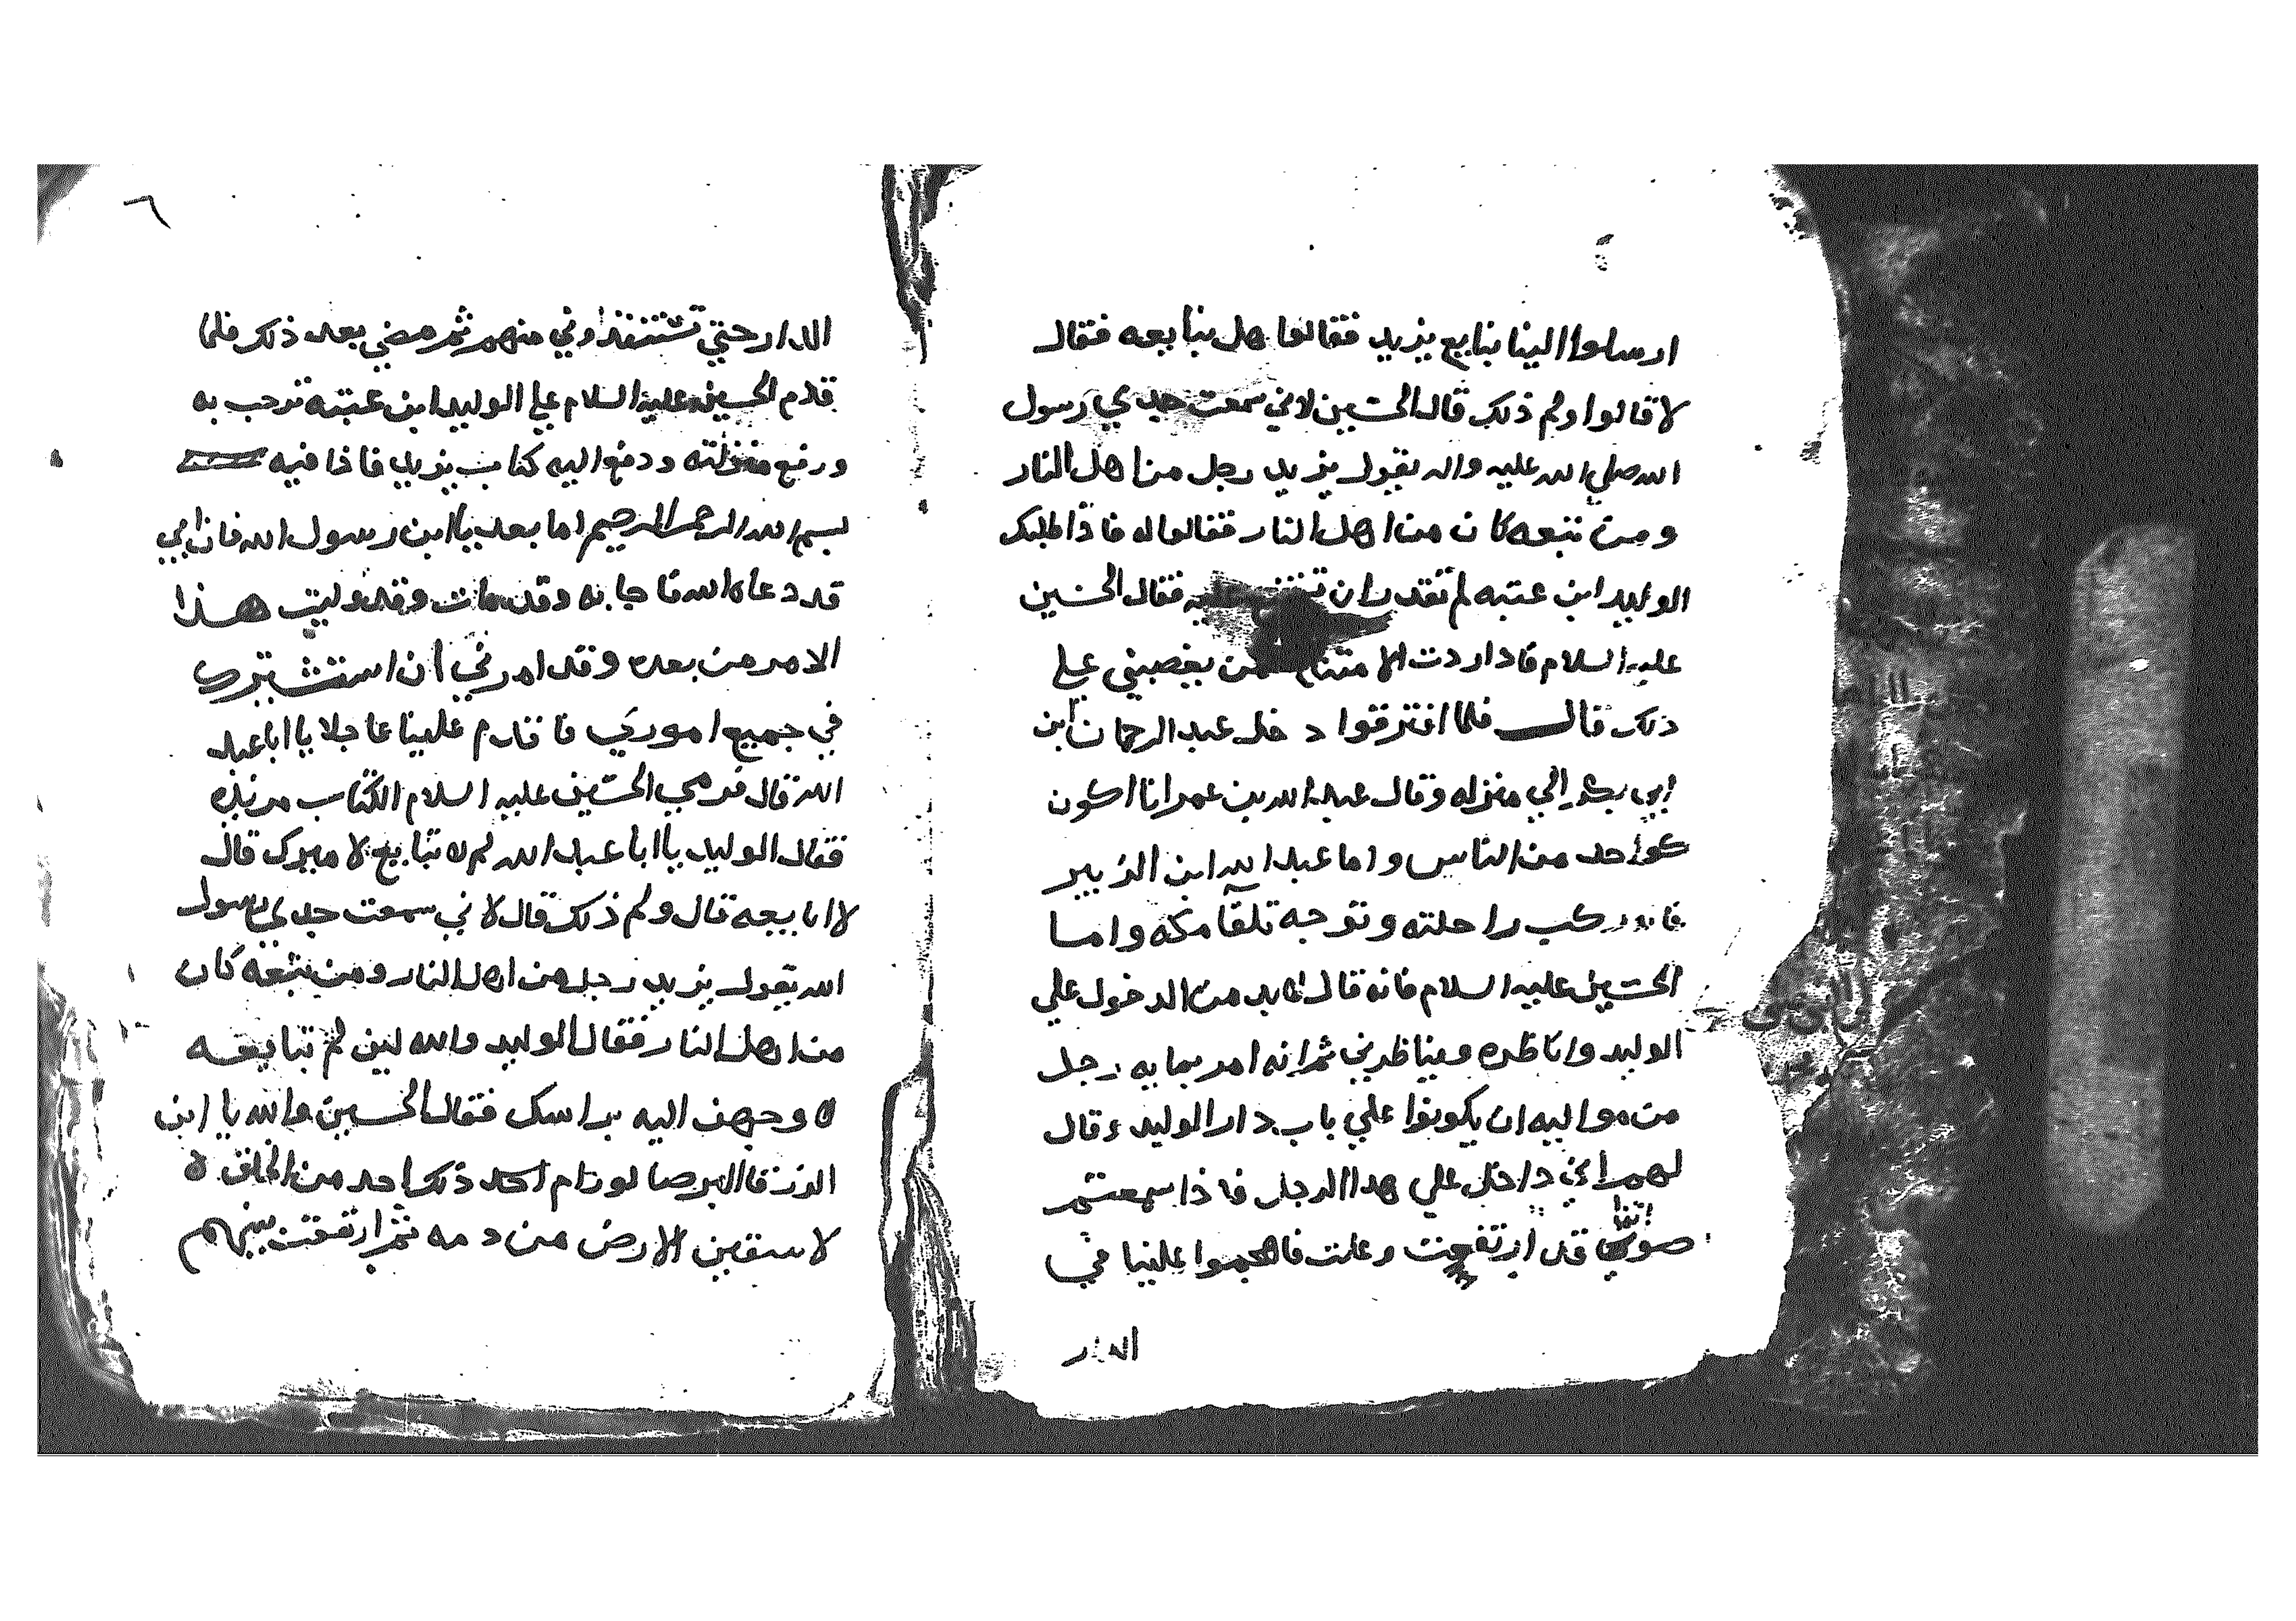 ارسلوا الينا نبايع يزيد فقالوا هل نبايعه فقال
لا قالوا ولم ذلك قال الحسين لاني سمعت جدي رسول
الله صلي الله عليه واله يقول يزيد رجل من اهل النار
ومن تبعه كان من اهل النار فقالوا له فاذا طلبك
الوليد ابن عتبه لم تقدر ان عليه فقال الحسين
عليه السلام فاذا ردت الا من يغصبني علي
ذلك قال فلما افترقوا دخل عبد الرحمان ابن
ابي بكر الي منزله وقال عبد الله بن عمر انا اكون
كواحد من الناس واما عبد الله ابن الزبير
فانه ركب راحلته وتوجه تلقآ مكه واما
الحسين عليه السلام فانه قال لابد من الدخول علي
الوليد واناظره ويناظرني ثم انه امر بمايه رجل
من مواليه ان يكونوا علي باب دار الوليد وقال
لهم اني داخل علي هدا الرجل فاذا سمعتم
صوتي قد ارتفعت وعلت فاهجموا علينا في
الدار
٦
الدار حتي تستنفذوني منهم ثم مضي بعد ذلك فلما
قدم الحسين عليه السلام علي الوليد ابن عتبه ترحب به
ورفع منزلته ودفع اليه كتاب يزيد فاذا فيه
بسم الله الرحمن الرحيم اما بعد يا ابن رسول الله فان ابي
قد دعاه الله فاجابه وقد مات وقد وليت هذا
الامر من بعده وقد امرني ان استشيرك
في جميع اموري فاقدم علينا عاجلا يا ابا عبد
الله قال فرمي الحسين عليه السلام الكتاب من يده
فقال الوليد يا ابا عبد الله لم لا تبايع لاميرك قال
لا ابايعه قال ولم ذلك قال لاني سمعت جدي رسول
الله يقول يزيد رجل من اهل النار ومن يتبعه كان
من اهل النار فقال الوليد والله لين لم تبايعه
لا وجهن اليه براسك فقال الحسين والله يا ابن
الزرقا البرصا لو رام احد ذلك احد من الخلق لا
لاسقين الارض من دمه ثم ارتفعت بينهم